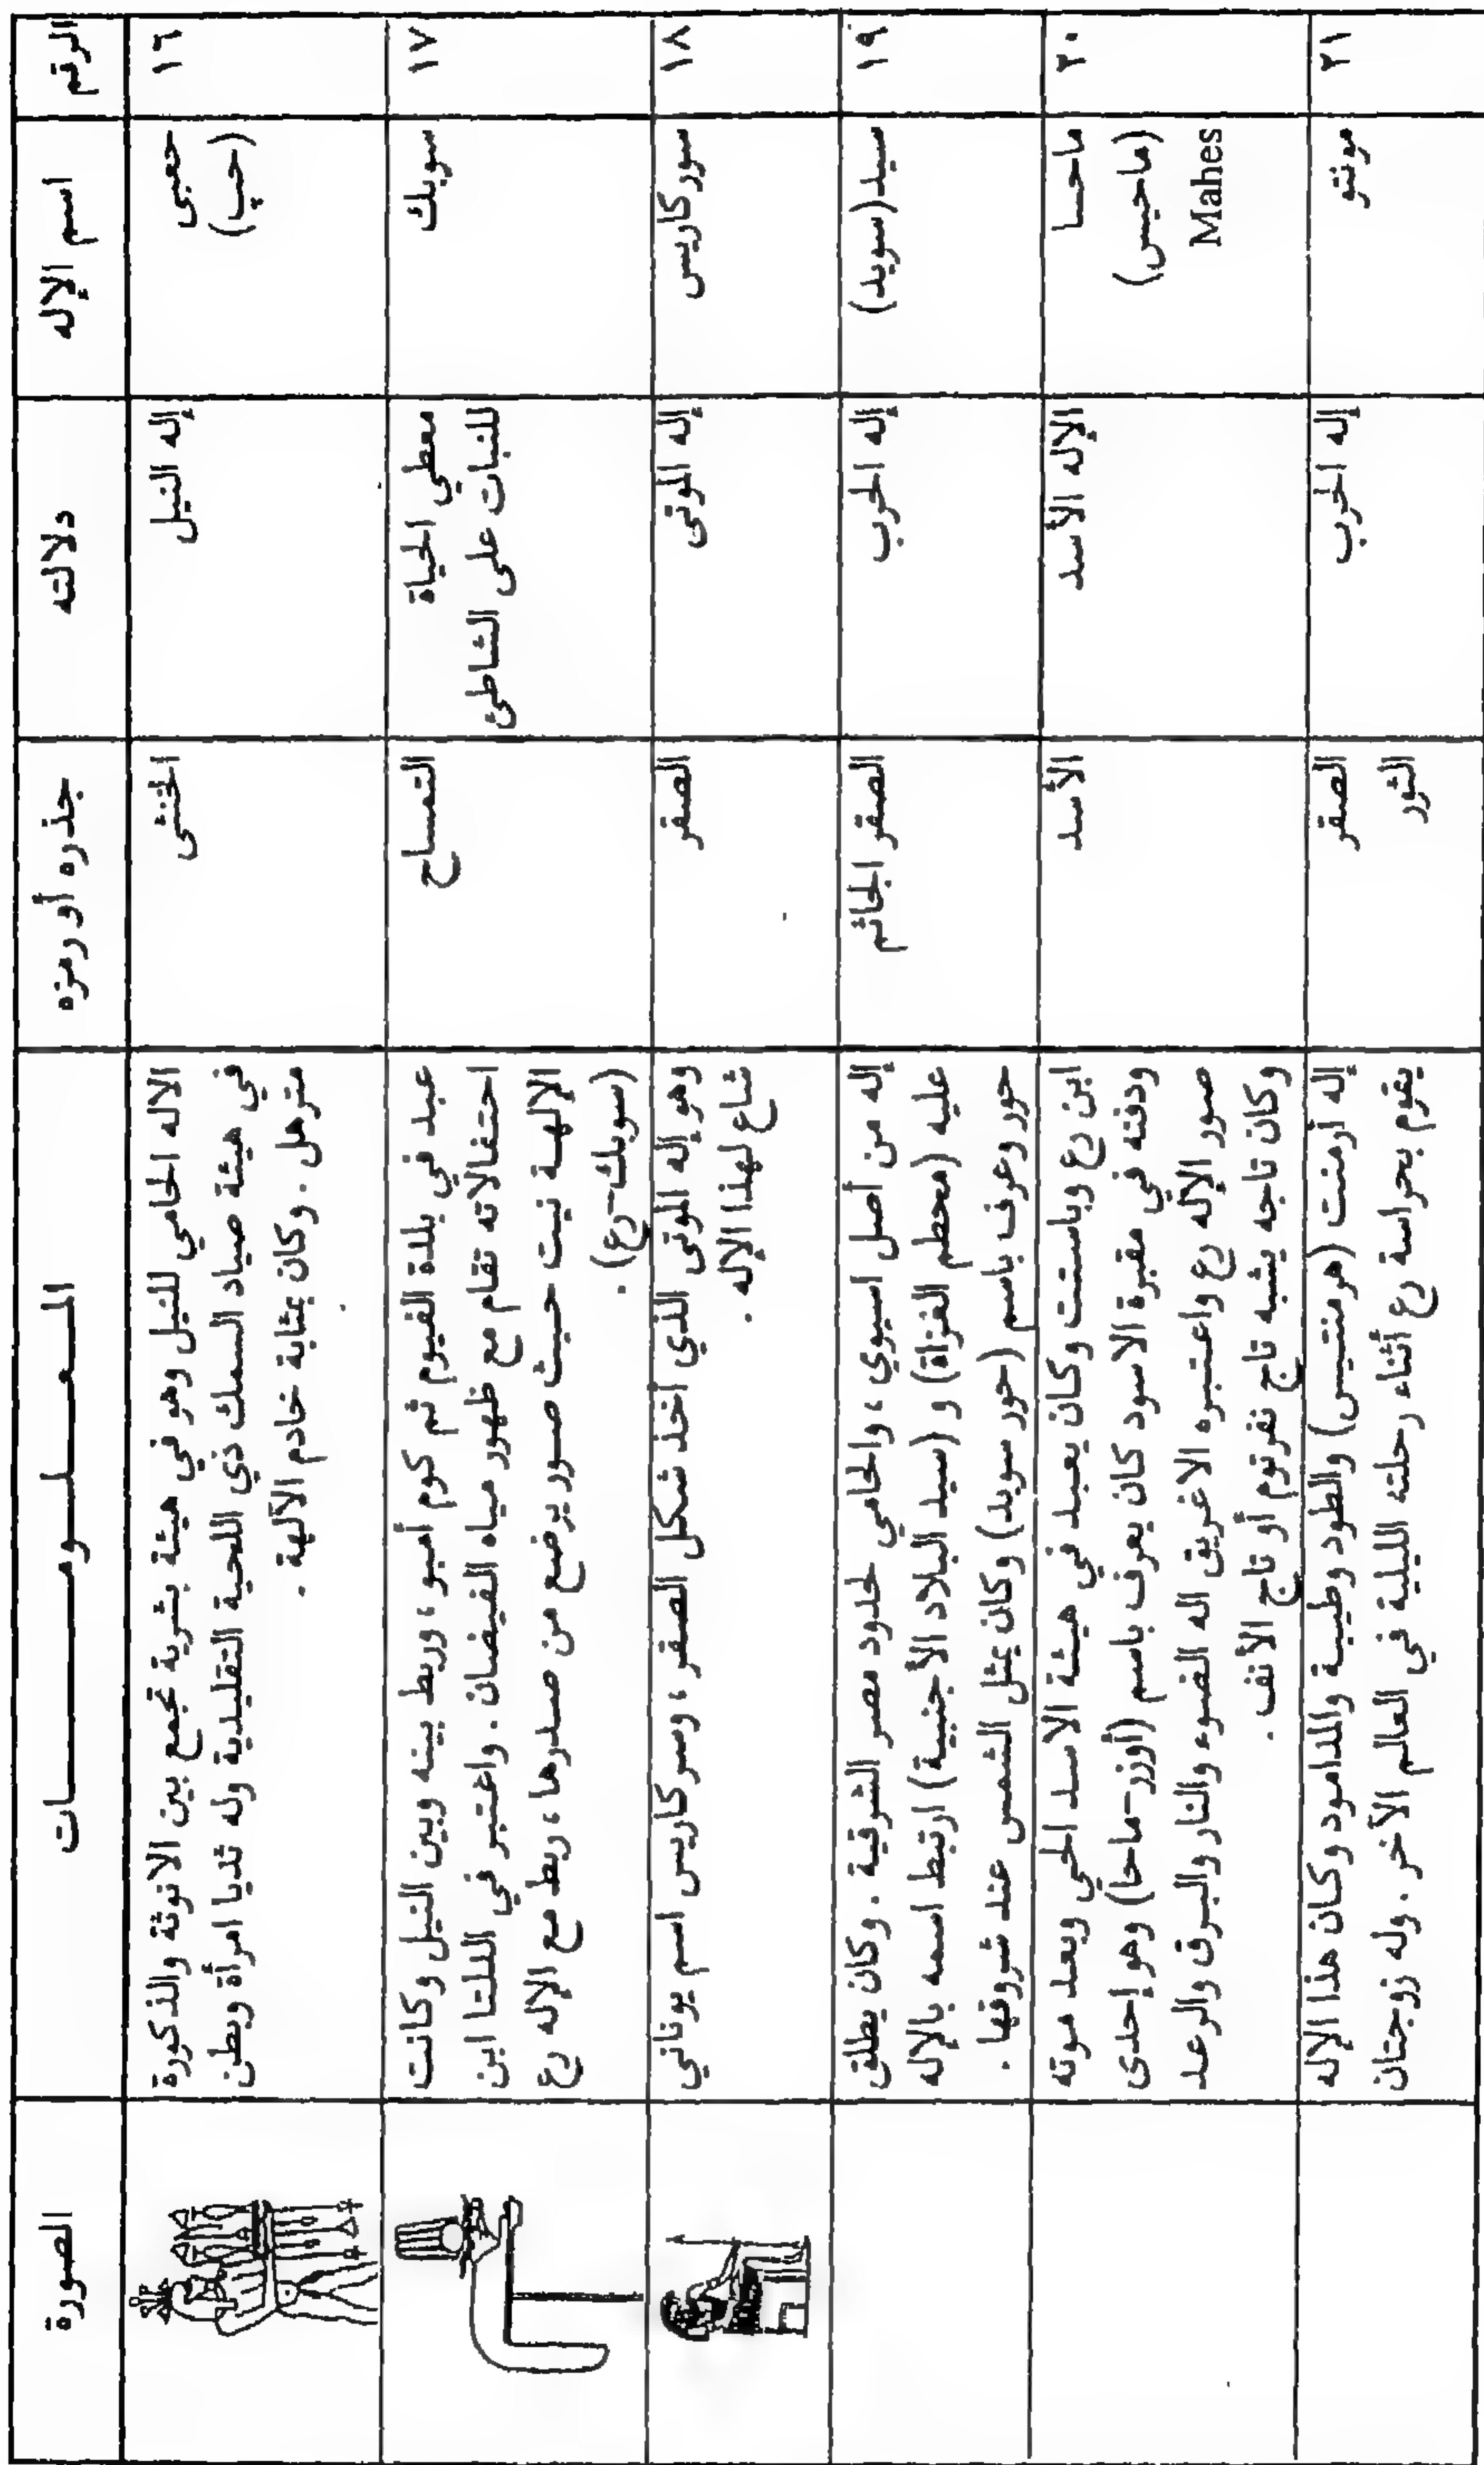 الرقم
اسم الإله
دلالته
جذره أو رمزه
المعلومات
الصورة
١٦
حعبي
(حپ)
إله النيل
الخنثى
الاله الحامي للنيل وهو في هيئة بشرية تجمع بين الانوثة والذكورة
في هيئة صياد السمك ذي اللحية التقليدية وله ثديا امرأة وبطن
مترهل . وكان بمثابة خادم الآلهة .
١٧
سوبك
معطي الحياة
للنبات على الشاطئ
التمساح
عبد في بلدة الفيوم ثم كوم أمبو ، وربط بينه وبين النيل وكانت
احتفالاته تقام مع ظهور مياه الفيضان . واعتبر في الدلتا ابن
الإلهة نيت حيث صور يرضع من صدرها ، ربط مع الإله رع
(سوبك-رع) .
١٨
سوركاريس
إله الموتى
الصقر
وهو إله الموتى الذي اخذ شكل الصقر ، وسركاريس اسم يوناني
شاع لهذا الإله .
١٩
سيد (سويد)
إله الحرب
الصقر الجاثم
إله من أصل اسيوي ، والحامي لحدود مصر الشرقية . وكان يطلق
عليه (محطم الغزاة) و (سيد البلاد الأجنبية) ارتبط اسمه بالإله
حور وعرف باسم (حور سويد) وكان يمثل الشمس عند شروقها .
٢٠
ماحسا
(ماحيس)
Mahes
الإله الأسد
الأسد
ابن رع وباستت وكان يعبد في هيئة الاسد الحي وبعد موته
ودفنه في مقبرة الاسود كان يعرف باسم (أوزر-ماحا) وهو إحدى
صور الإله رع واعتبره الاغريق اله الضوء والنار والبرق والرعد
وكان تاجه يشبه تاج نفرتوم أو تاج الأتف .
٢١
مونتو
إله الحرب
الصقر
الثور
إله أرمنت (هرمنتيس) والطود وطيبة والمدامود وكان هذا الإله
يقوم بحراسة رع أثناء رحلته الليلية في العالم الآخر . وله زوجتان